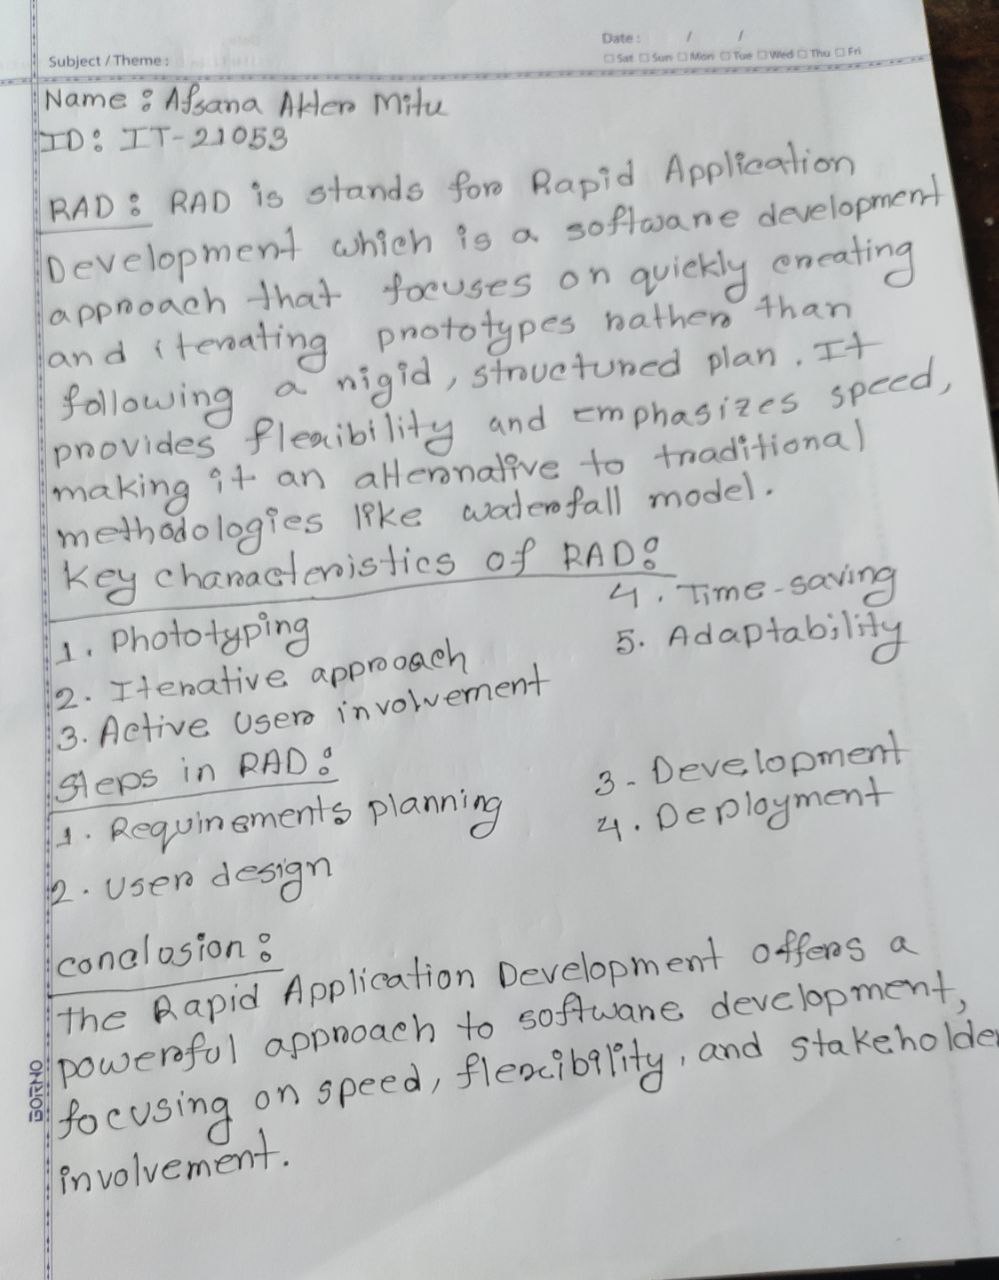 Date : / /
Subject / Theme :
Sat Sun Mon Tue Wed Thu Fri
Name : Afsana Akter Mitu
ID: IT-21053
RAD: RAD is stands for Rapid Application
Development which is a software development
approach that focuses on quickly creating
and iterating prototypes rather than
following a rigid, structured plan. It
provides flexibility and emphasizes speed,
making it an alternative to traditional
methodologies like waterfall model.
Key characteristics of RAD:
1. Phototyping
2. Iterative approach
3. Active User involvement
4. Time-saving
5. Adaptability
Steps in RAD:
1. Requirements planning
2. User design
3- Development
4. Deployment
Conclusion:
The Rapid Application Development offers a
powerful approach to software development,
focusing on speed, flexibility, and stakeholder
involvement.
BORNO